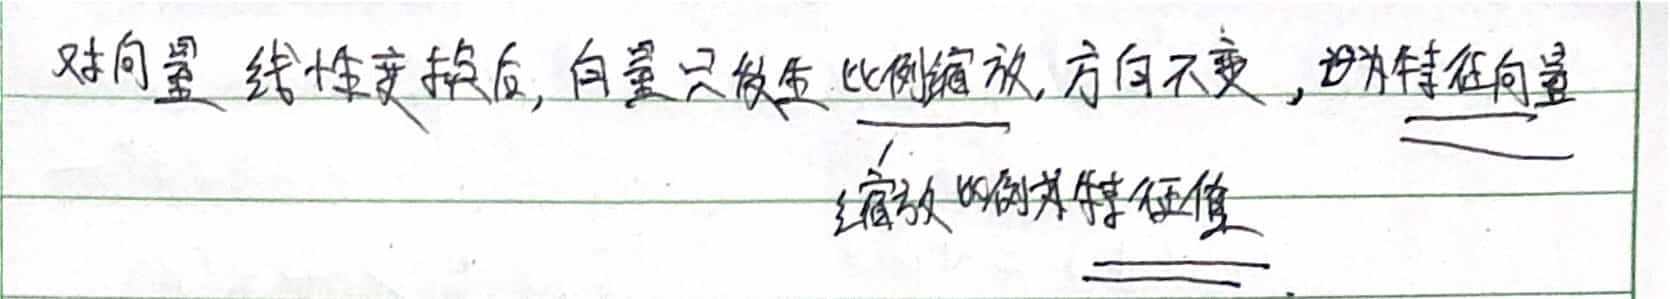 对向量 线性变换后, 向量只发生 比例缩放, 方向不变, 此为特征向量
缩放比例为特征值